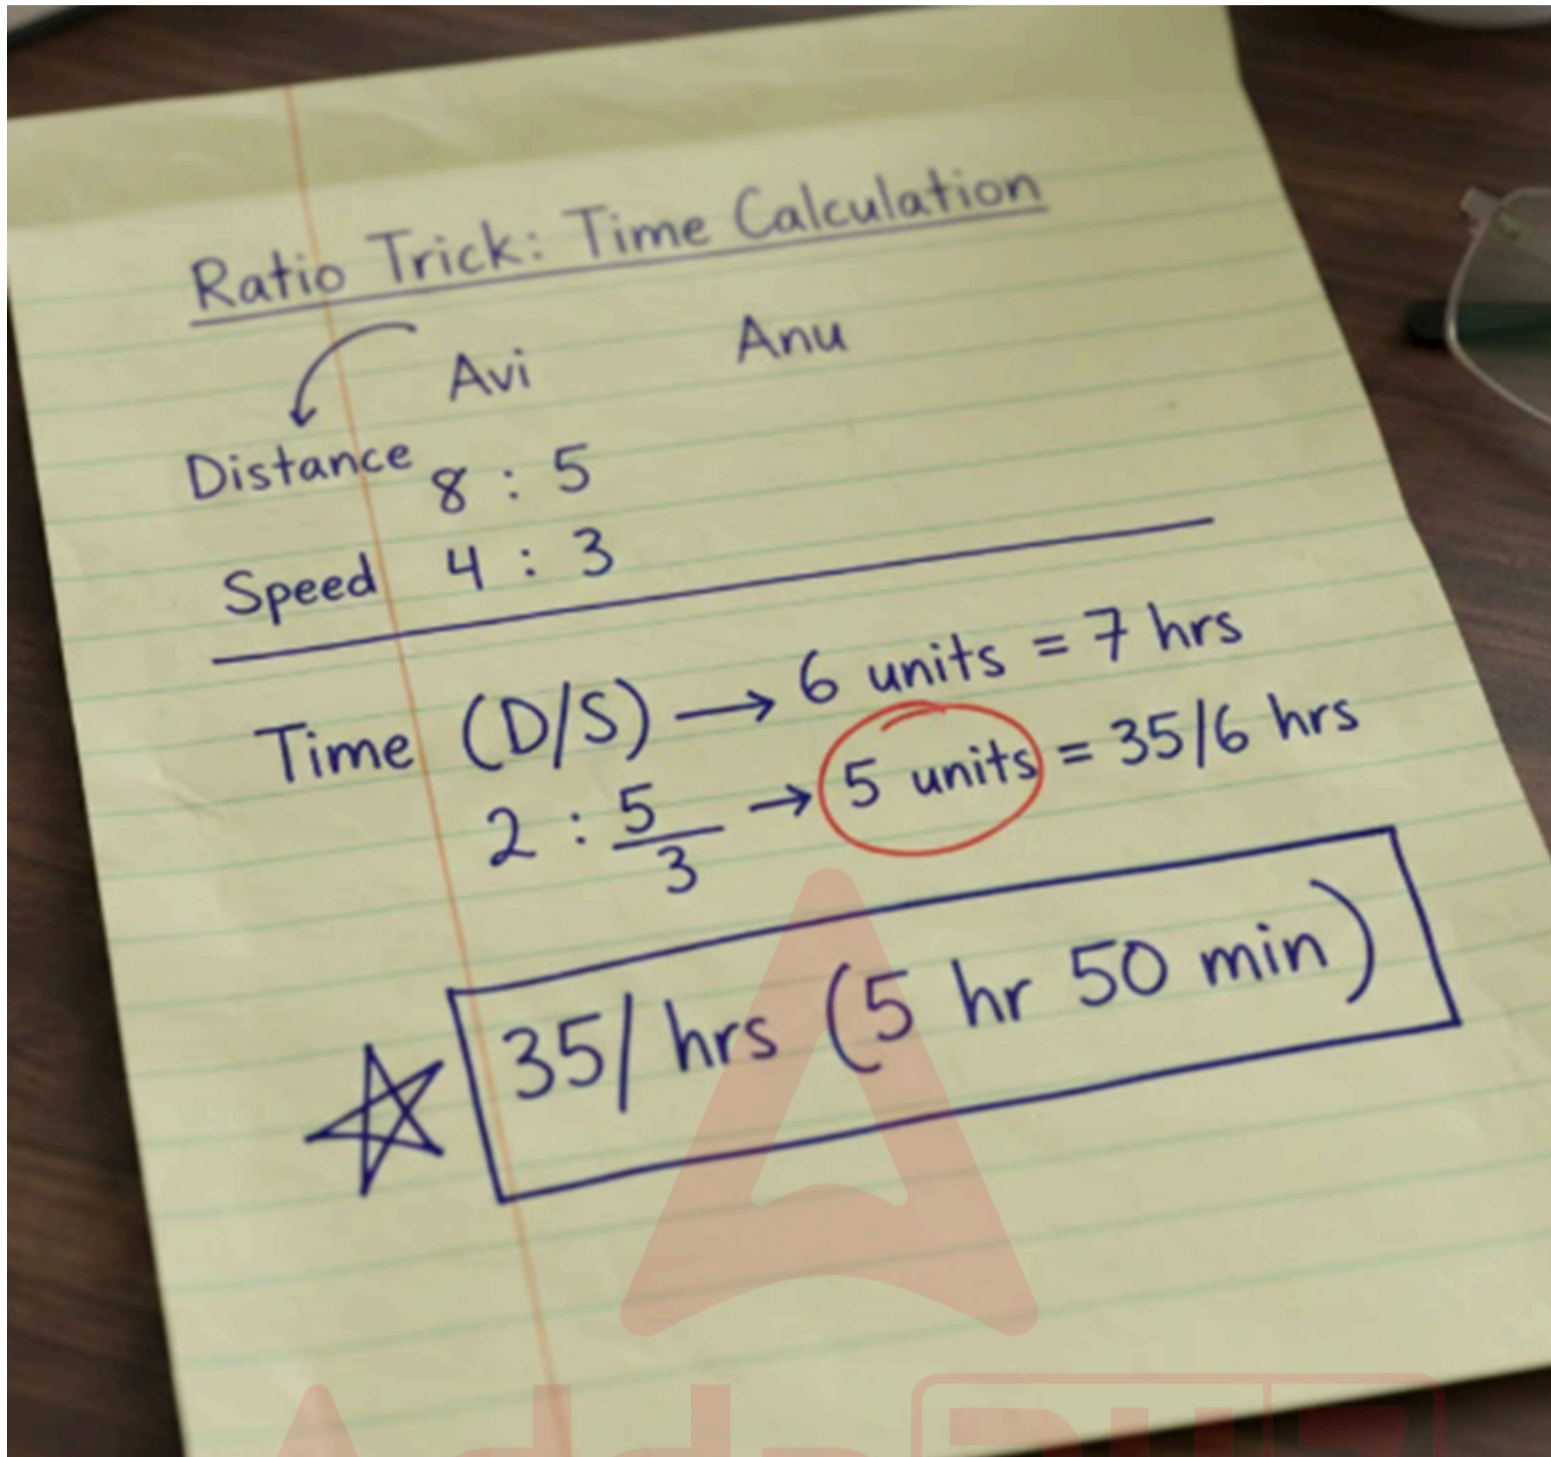 Ratio Trick: Time Calculation
Avi Anu
Distance 8 : 5
Speed 4 : 3
Time (D/S) → 6 units = 7 hrs
2 : 5/3 → 5 units = 35/6 hrs
35/ hrs (5 hr 50 min)